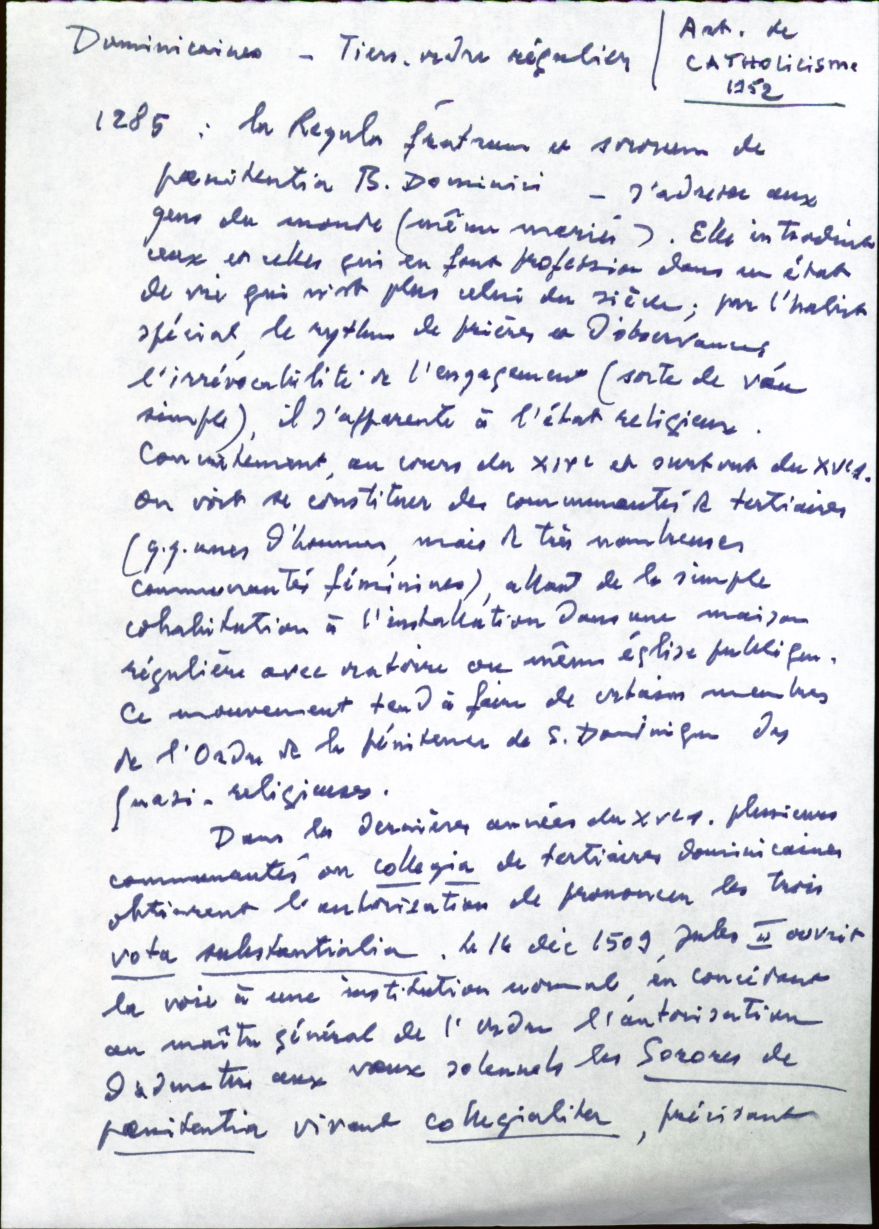 Dominicaines - Tiers-ordre régulier
Art. de
CATHOLICISME
1952
1285 : la Regula fratrum et sororum de
pœnitentia B. Dominici - s'adresse aux
gens du monde (même mariés). Elle introduit
ceux et celles qui en font profession dans un état
de vie qui n'est plus celui du siècle; par l'habit
spécial, le rythme de prières et d'observances,
l'irrévocabilité de l'engagement (sorte de vœu
simple), il s'apparente à l'état religieux.
Concrètement, au cours du XIVe et surtout du XVe s.
on voit se constituer des communautés de tertiaires
(q.q. unes d'hommes, mais de très nombreuses
communautés féminines), allant de la simple
cohabitation à l'installation dans une maison
régulière avec oratoire ou même église publique.
Ce mouvement tend à faire de certains membres
de l'Ordre de la pénitence de S. Dominique des
quasi-religieuses.
Dans les dernières années du XVe s. plusieurs
communautés ou collegia de tertiaires dominicaines
obtinrent l'autorisation de prononcer les trois
vota substantialia. Le 14 déc 1509, Jules II ouvrit
la voie à une institution normale, en concédant
au maître général de l'ordre l'autorisation
d'admettre aux vœux solennels les Sorores de
pœnitentia vivant collegialiter, précisant